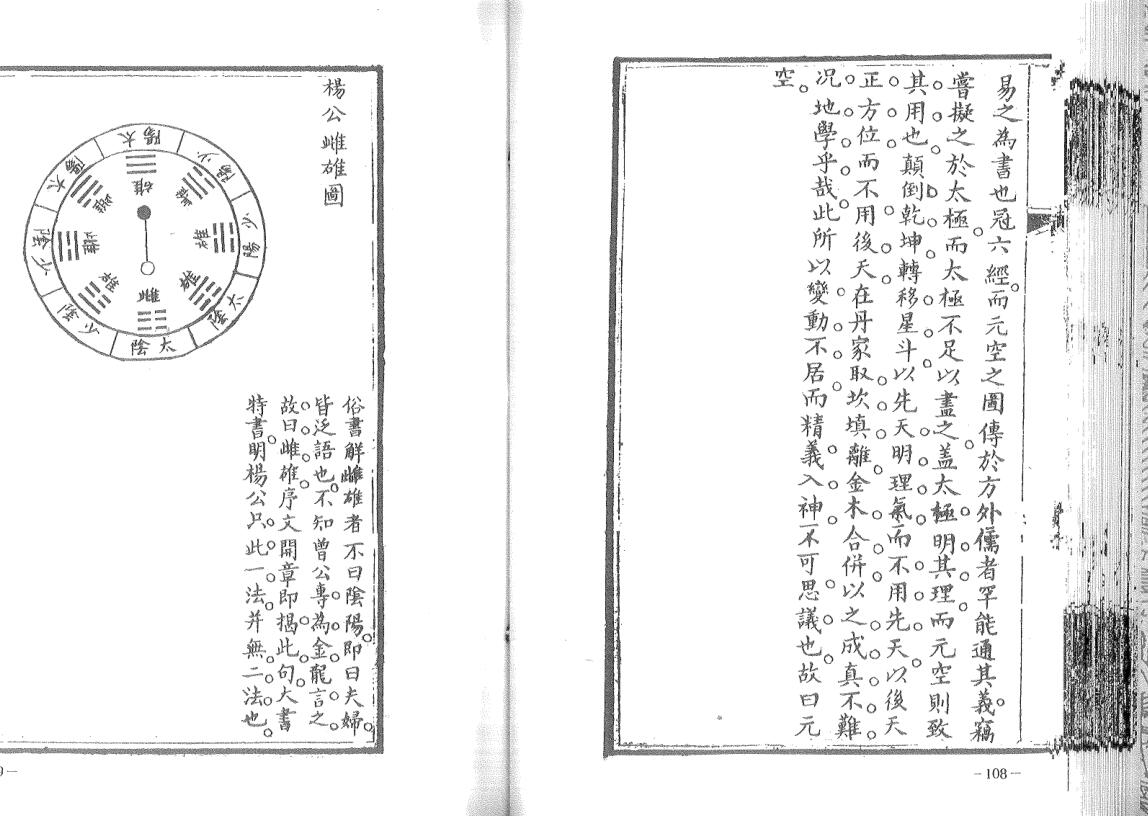 易之為書也。冠六經。而元空之圖傳於方外儒者罕能通其義。竊
嘗擬之於太極而太極不足以盡之。盖太極明其理。而元空則致
其用也。顛倒乾坤轉移星斗以先天明理氣而不用先天以後天
正方位而不用後天在丹家取坎填離金木合併以之成真不難
况地學乎哉此所以變動不居而精義入神不可思議也故曰元
空。
－108－
楊公雌雄圖
太陽
少陽
少陽
太陰
太陰
少陰
少陰
太陽
雄
雌
雄
雌
雄
雌
雌
俗書解雌雄者不曰陰陽。即曰夫婦。
皆泛語也。不知曾公專為金龍言之。
故曰雌雄序文開章即揭此句大書
特書。明楊公只此一法并無二法也。
9－